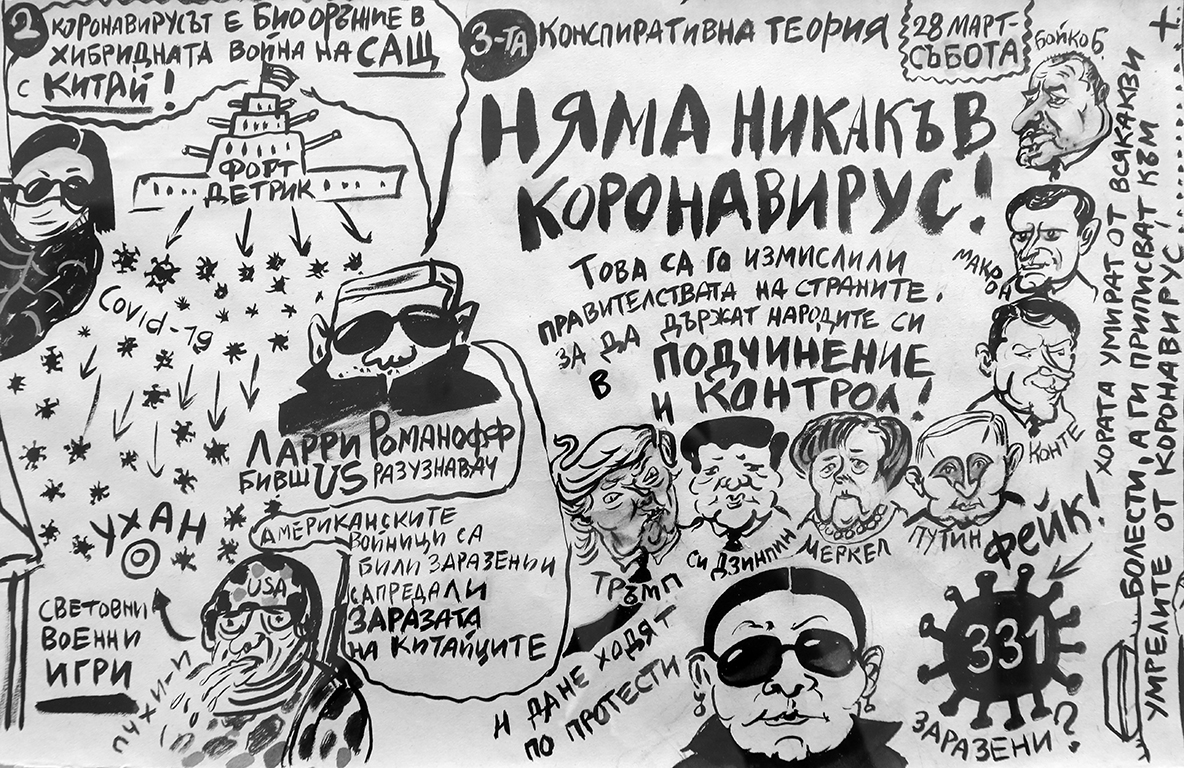 2
КОРОНАВИРУСЪТ Е БИООРЪЖИЕ В
ХИБРИДНАТА ВОЙНА НА САЩ
С КИТАЙ!
ФОРТ
ДЕТРИК
Covid-19
ЛАРРИ РОМАНОФФ
БИВШ US РАЗУЗНАВАЧ
АМЕРИКАНСКИТЕ
ВОЙНИЦИ СА
БИЛИ ЗАРАЗЕНИ И
СА ПРЕДАЛИ
ЗАРАЗАТА
НА КИТАЙЦИТЕ
УХАН
USA
СВЕТОВНИ
ВОЕННИ
ИГРИ
3-ТА КОНСПИРАТИВНА ТЕОРИЯ
28 МАРТ-
СЪБОТА
НЯМА НИКАКЪВ
КОРОНАВИРУС!
ТОВА СА ГО ИЗМИСЛИЛИ
ПРАВИТЕЛСТВАТА НА СТРАНИТЕ.
ЗА ДА ДЪРЖАТ НАРОДИТЕ СИ
В ПОДЧИНЕНИЕ
И КОНТРОЛ!
БОЙКО Б.
МАКРОН
КОНТЕ
ТРЪМП
СИ ДЗИНПИН
МЕРКЕЛ
ПУТИН
И ДА НЕ ХОДЯТ
ПО ПРОТЕСТИ
ФЕЙК!
331
ЗАРАЗЕНИ?
ХОРАТА УМИРАТ ОТ ВСЯКАКВИ
БОЛЕСТИ, А ГИ ПРИПИСВАТ КЪМ
УМРЕЛИТЕ ОТ КОРОНАВИРУС!